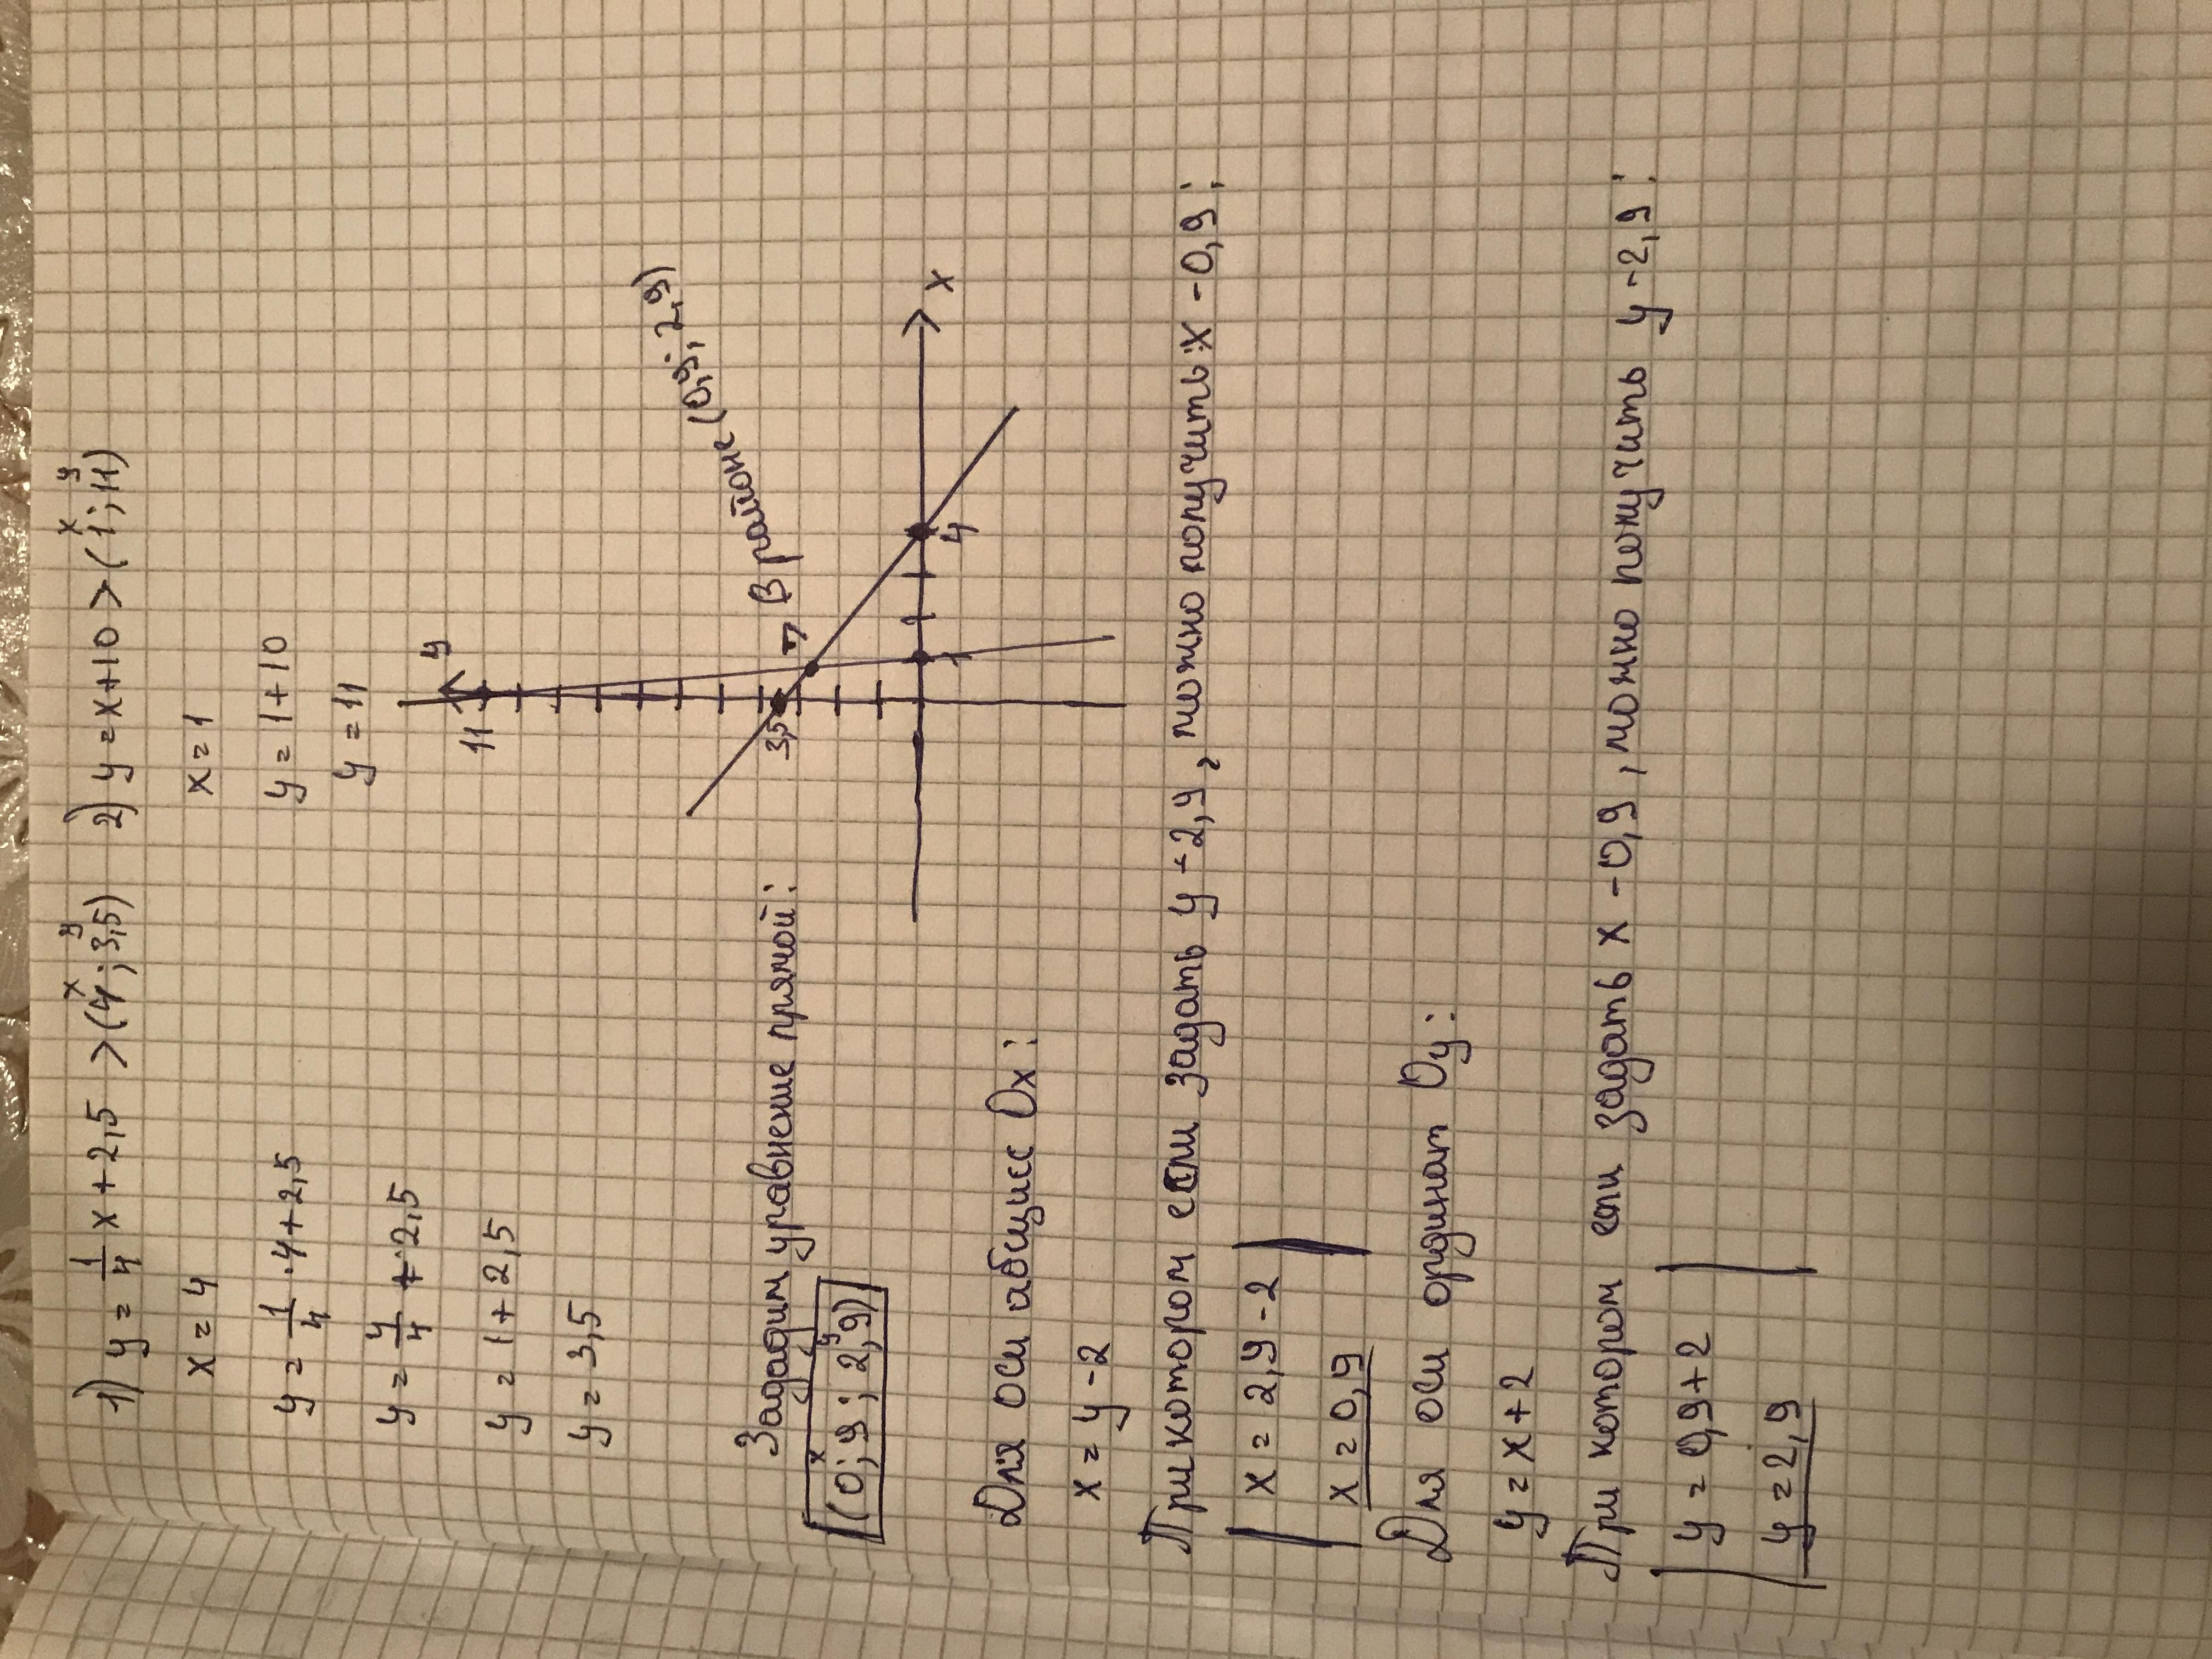 1) y = 1/4 x + 2,5 > (4; 3,5) 2) y = x + 10 > (1; 11)
x y x y
x = 4 x = 1
y = 1/4 · 4 + 2,5 y = 1 + 10
y = 4/4 + 2,5 y = 11
y = 1 + 2,5
y = 3,5
y
11
3,5
В районе (0,9; 2,9)
1 4 x
Зададим уравнение прямой:
x y
(0,9; 2,9)
Для оси абцисс Ox:
x = y - 2
При котором если задать y - 2,9, можно получить x - 0,9:
x = 2,9 - 2
x = 0,9
Для оси ординат Oy:
y = x + 2
При котором если задать x - 0,9, можно получить y - 2,9:
y = 0,9 + 2
y = 2,9